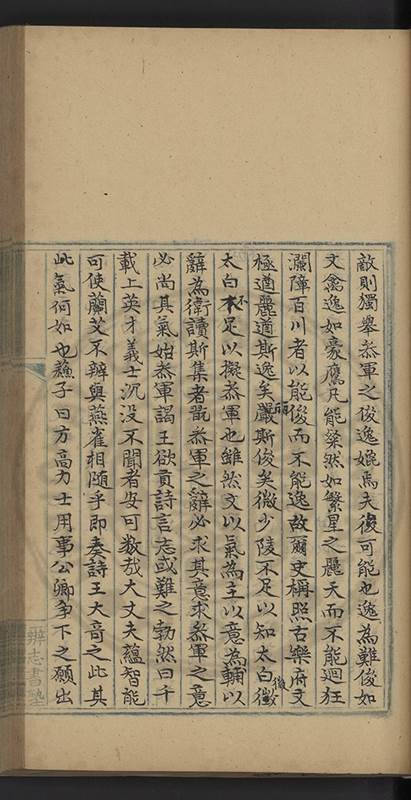 敵則獨舉叅軍之俊逸嬺焉夫俊可能也逸為難俊如
文禽逸如豪鷹凡能粲然如繁星之麗天而不能迴狂
瀾障百川者以能俊而不能逸故爾史稱照古樂府文
極遒麗遒斯逸矣麗斯俊矣微少陵不足以知太白微
太白不足以擬叅軍也雖然文以氣為主以意為輔以
辭為衛讀斯集者翫叅軍之辭必求其意求叅軍之意
必尚其氣始叅軍謁王欲貢詩言志或難之勃然曰千
載上英才義士沉没不聞者安可数哉大丈夫蘊智能
可使蘭艾不辨與燕雀相随乎即奏詩王大奇之此其
此氣何如也蘇子曰方高力士用事公卿争下之願出
辨志書塾